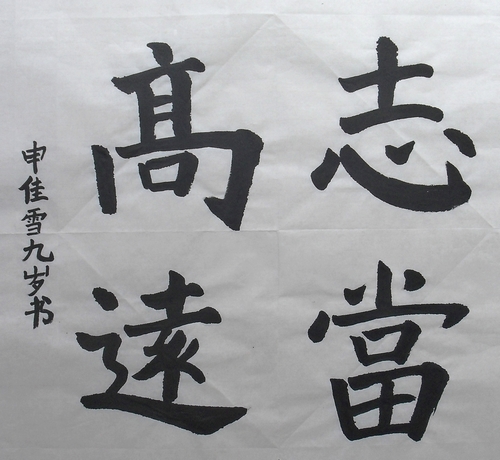 志當
髙遠
申佳雪九岁书